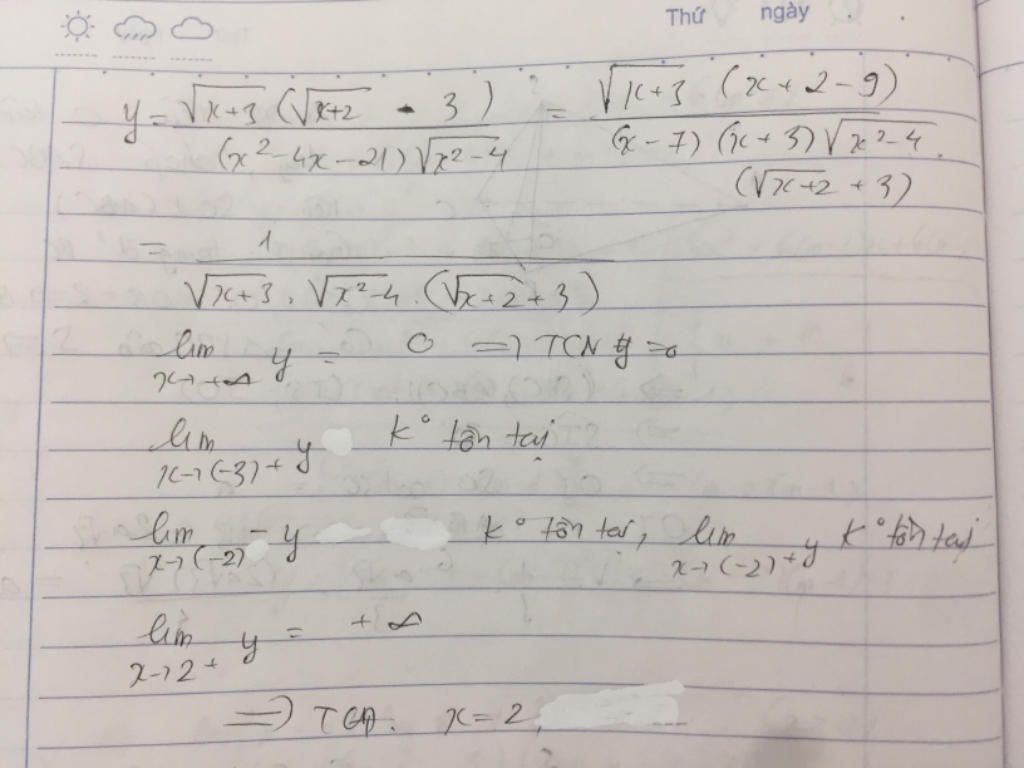 Thứ ngày . .
y = √(x+3) (√(x+2) - 3) / (x² - 4x - 21) √(x² - 4) = √(x+3) (x + 2 - 9) / (x - 7) (x + 3) √(x² - 4) . (√(x+2) + 3)
= 1 / √(x+3) . √(x² - 4) . (√(x+2) + 3)
lim x→+∞ y = 0 => TCN y = 0
lim x→(-3)+ y k° tồn tại
lim x→(-2)- y k° tồn tại, lim x→(-2)+ y k° tồn tại
lim x→2+ y = +∞
=> TCĐ: x = 2